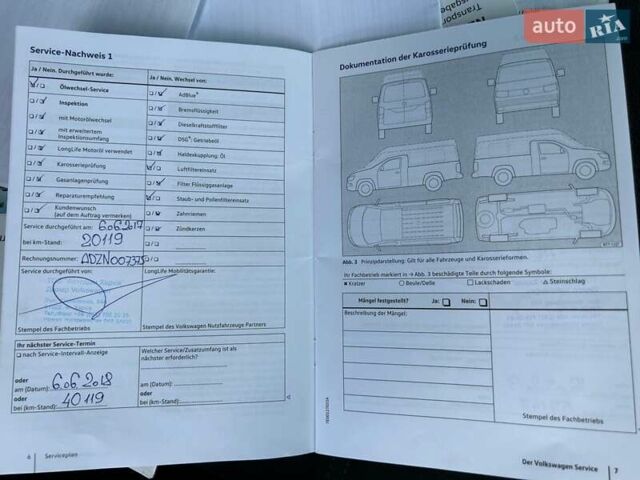 Transport
auto RIA.com
Service-Nachweis 1
Ja / Nein. Durchgeführt wurde:
Ja / Nein. Wechsel von:
Ölwechsel-Service
AdBlue®
Inspektion
Bremsflüssigkeit
mit Motorölwechsel
Dieselkraftstofffilter
mit erweitertem
Inspektionsumfang
DSG®: Getriebeöl
LongLife Motoröl verwendet
Haldexkupplung: Öl
Karosserieprüfung
Luftfiltereinsatz
Gasanlagenprüfung
Filter Flüssiggasanlage
Reparaturempfehlung
Staub- und Pollenfiltereinsatz
Kundenwunsch
(auf dem Auftrag vermerken)
Zahnriemen
Service durchgeführt am: 6.06.2017
Zündkerzen
bei km-Stand: 20119
Rechnungsnummer: ADZN007325
Service durchgeführt von:
LongLife Mobilitätsgarantie:
Stempel des Fachbetriebs
Stempel des Volkswagen Nutzfahrzeuge Partners
Ihr nächster Service-Termin
nach Service-Intervall-Anzeige
Welcher Service/Zusatzumfang ist als
nächster erforderlich?
oder
am (Datum): 6.06.2018
oder
am (Datum):
oder
bei (km-Stand): 40119
oder
bei (km-Stand):
6 Serviceplan
Dokumentation der Karosserieprüfung
Abb. 3 Prinzipdarstellung: Gilt für alle Fahrzeuge und Karosserieformen.
Ihr Fachbetrieb markiert in → Abb. 3 beschädigte Teile durch folgende Symbole:
× Kratzer ○ Beule/Delle □ Lackschaden △ Steinschlag
Mängel festgestellt? Ja: Nein:
Beschreibung der Mängel:
Stempel des Fachbetriebs
Der Volkswagen Service 7